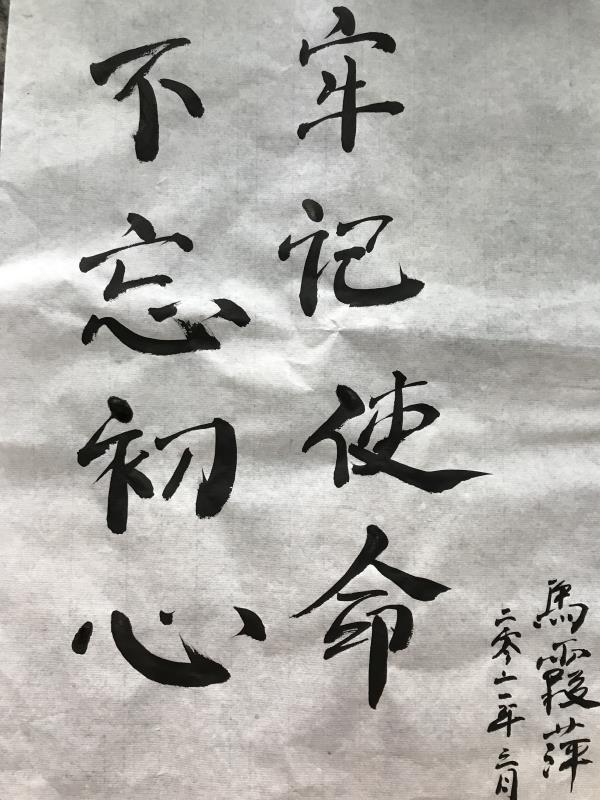 不忘初心
牢记使命
馬霞萍
二零二一年三月